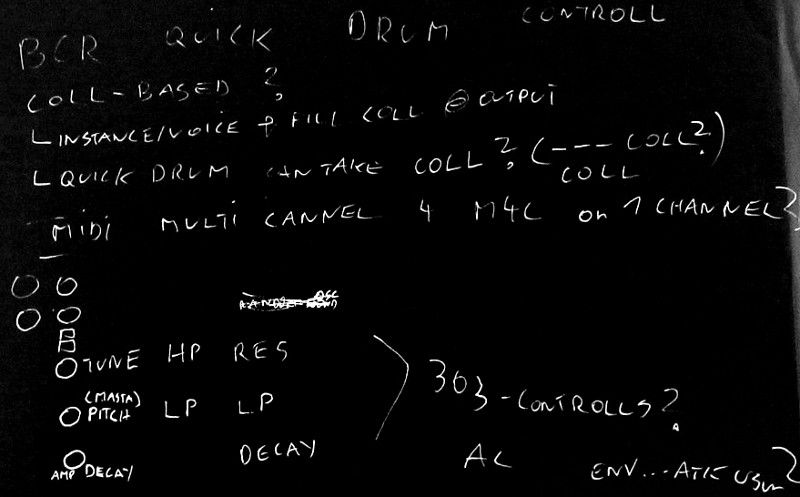 BCR QUICK DRUM CONTROLL
COLL-BASED ?
INSTANCE/VOICE FILL COLL @ OUTPUT
QUICK DRUM CAN TAKE COLL? (--- COLL?)
COLL
MIDI MULTI CANNEL 4 M4L on 1 CHANNEL?
OSC
TUNE HP RES
(MASTA)
PITCH LP LP
303-CONTROLLS?
AMP DECAY DECAY
ENV...ATK